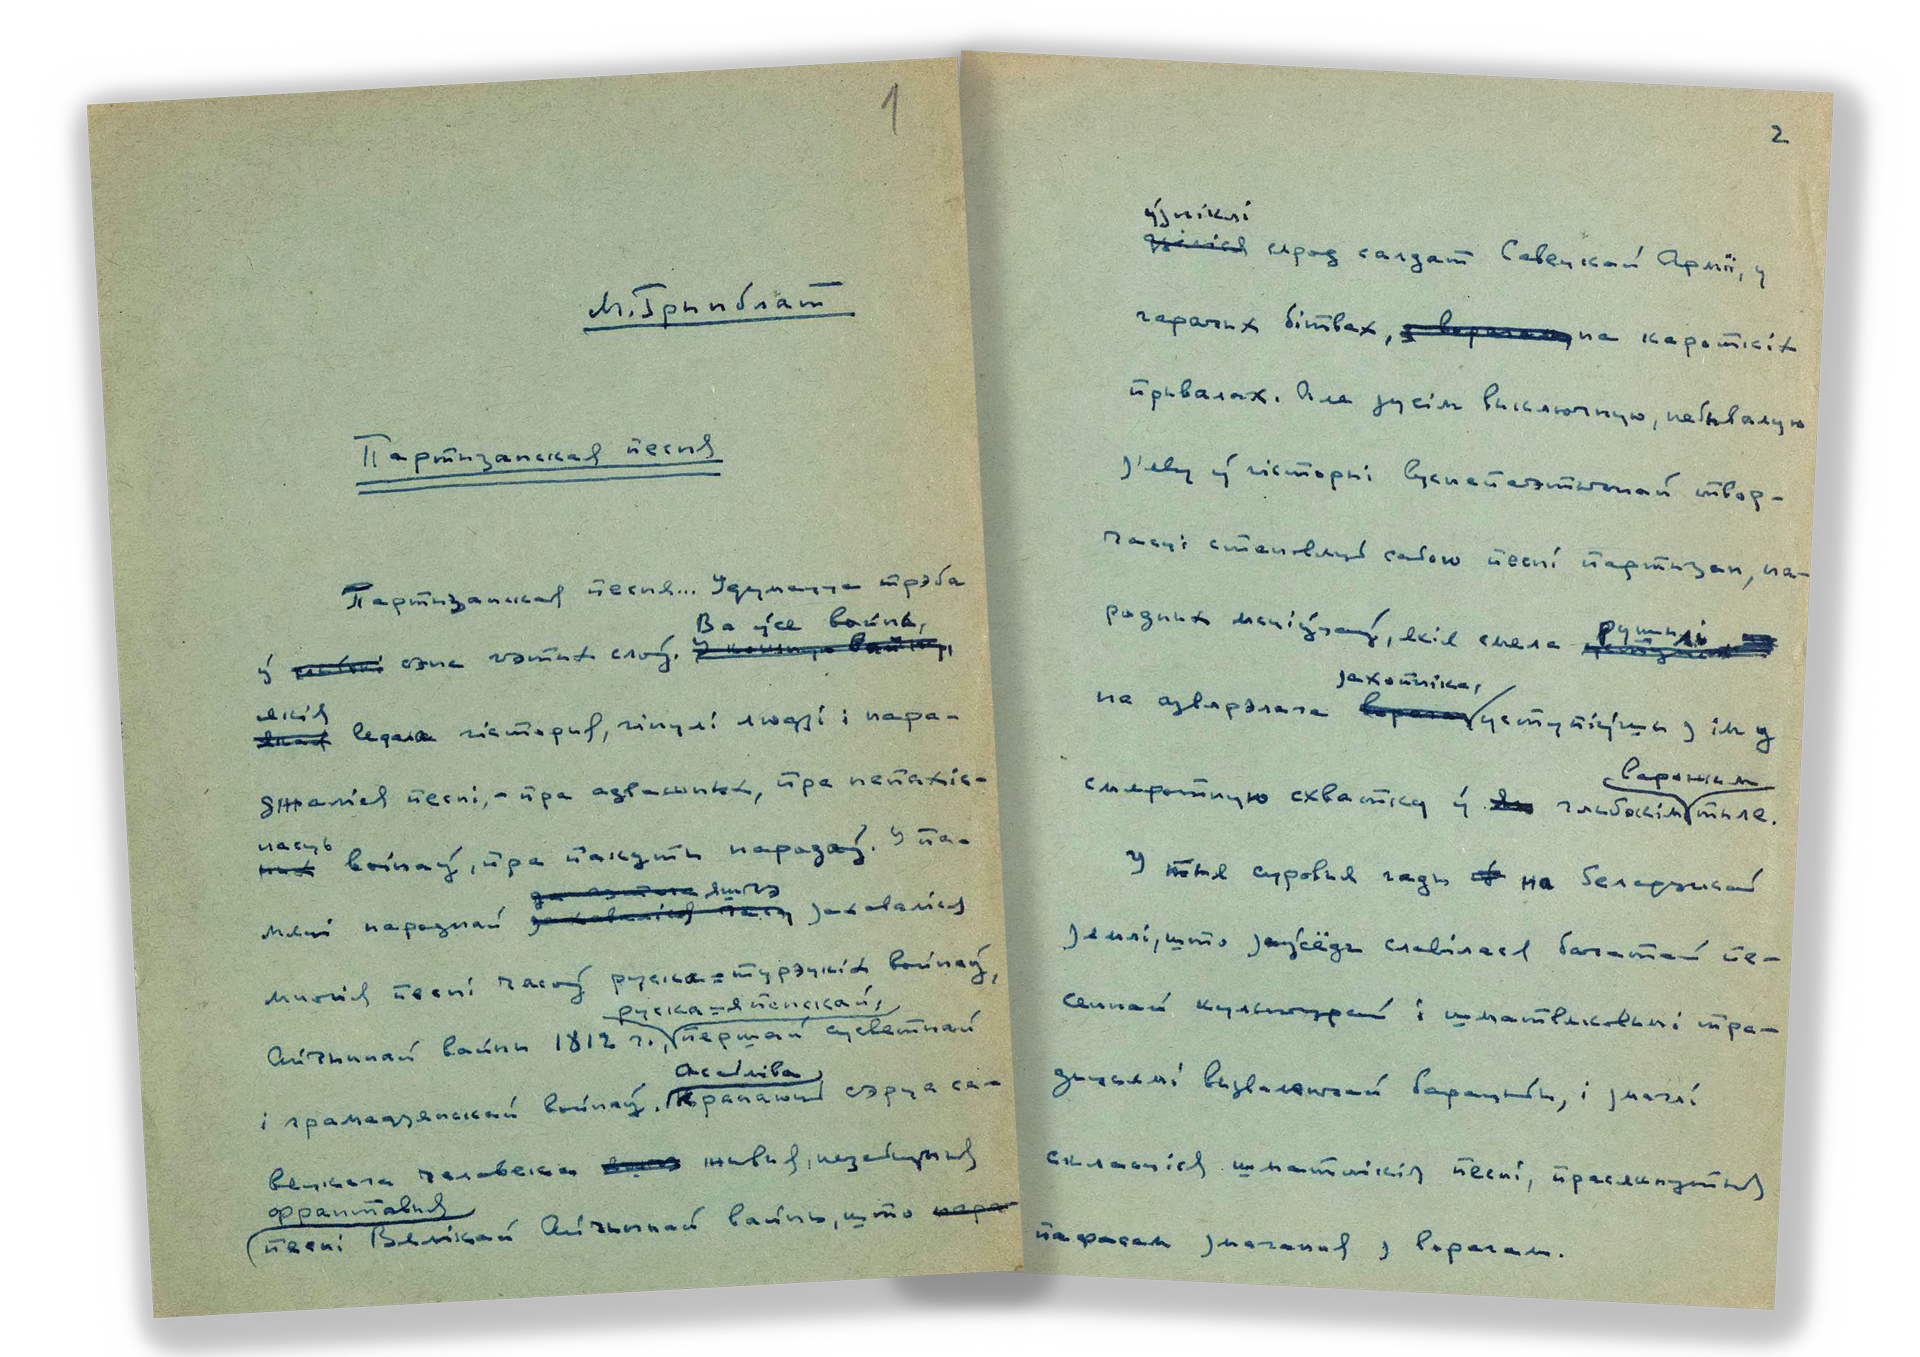 1
М. Грынблат
Партызанская песня
Партызанская песня... Удумацца трэба
Ва ўсе войны,
ў сэнс гэтых слоў.
якія
ведала гісторыя, гінулі людзі і нара-
джаліся песні, - пра адважных, пра непахіс-
насць
воінаў, пра пакуты народаў. У па-
яшчэ
мяці народнай захаваліся
многія песні часоў руска-турэцкіх войнаў,
руска-японскай,
Айчыннай вайны 1812 г., першай сусветнай
Асабліва
і грамадзянскай войнаў. Кранаюць сэрца са-
вецкага чалавека жывыя, незабыўныя
франтавыя
песні Вялікай Айчыннай вайны, што
2
ўзніклі
сярод салдат Савецкай Арміі, у
гарачых бітвах, на кароткіх
прывалах. Але зусім выключную, небывалую
з'яву ў гісторыі вуснапаэтычнай твор-
часці становяць сабою песні партызан, на-
родных мсціўцаў, якія смела рушылі
захопніка,
на азвярэлага уступіўшы з ім у
варожым
смяротную схватку ў глыбокім тыле.
У тыя суровыя гады на беларускай
зямлі, што заўсёды славілася багатай пе-
сеннай культурай і шматвяковымі тра-
дыцыямі вызваленчай барацьбы, і маглі
скласціся шматлікія песні, прасякнутыя
пафасам змагання з ворагам.